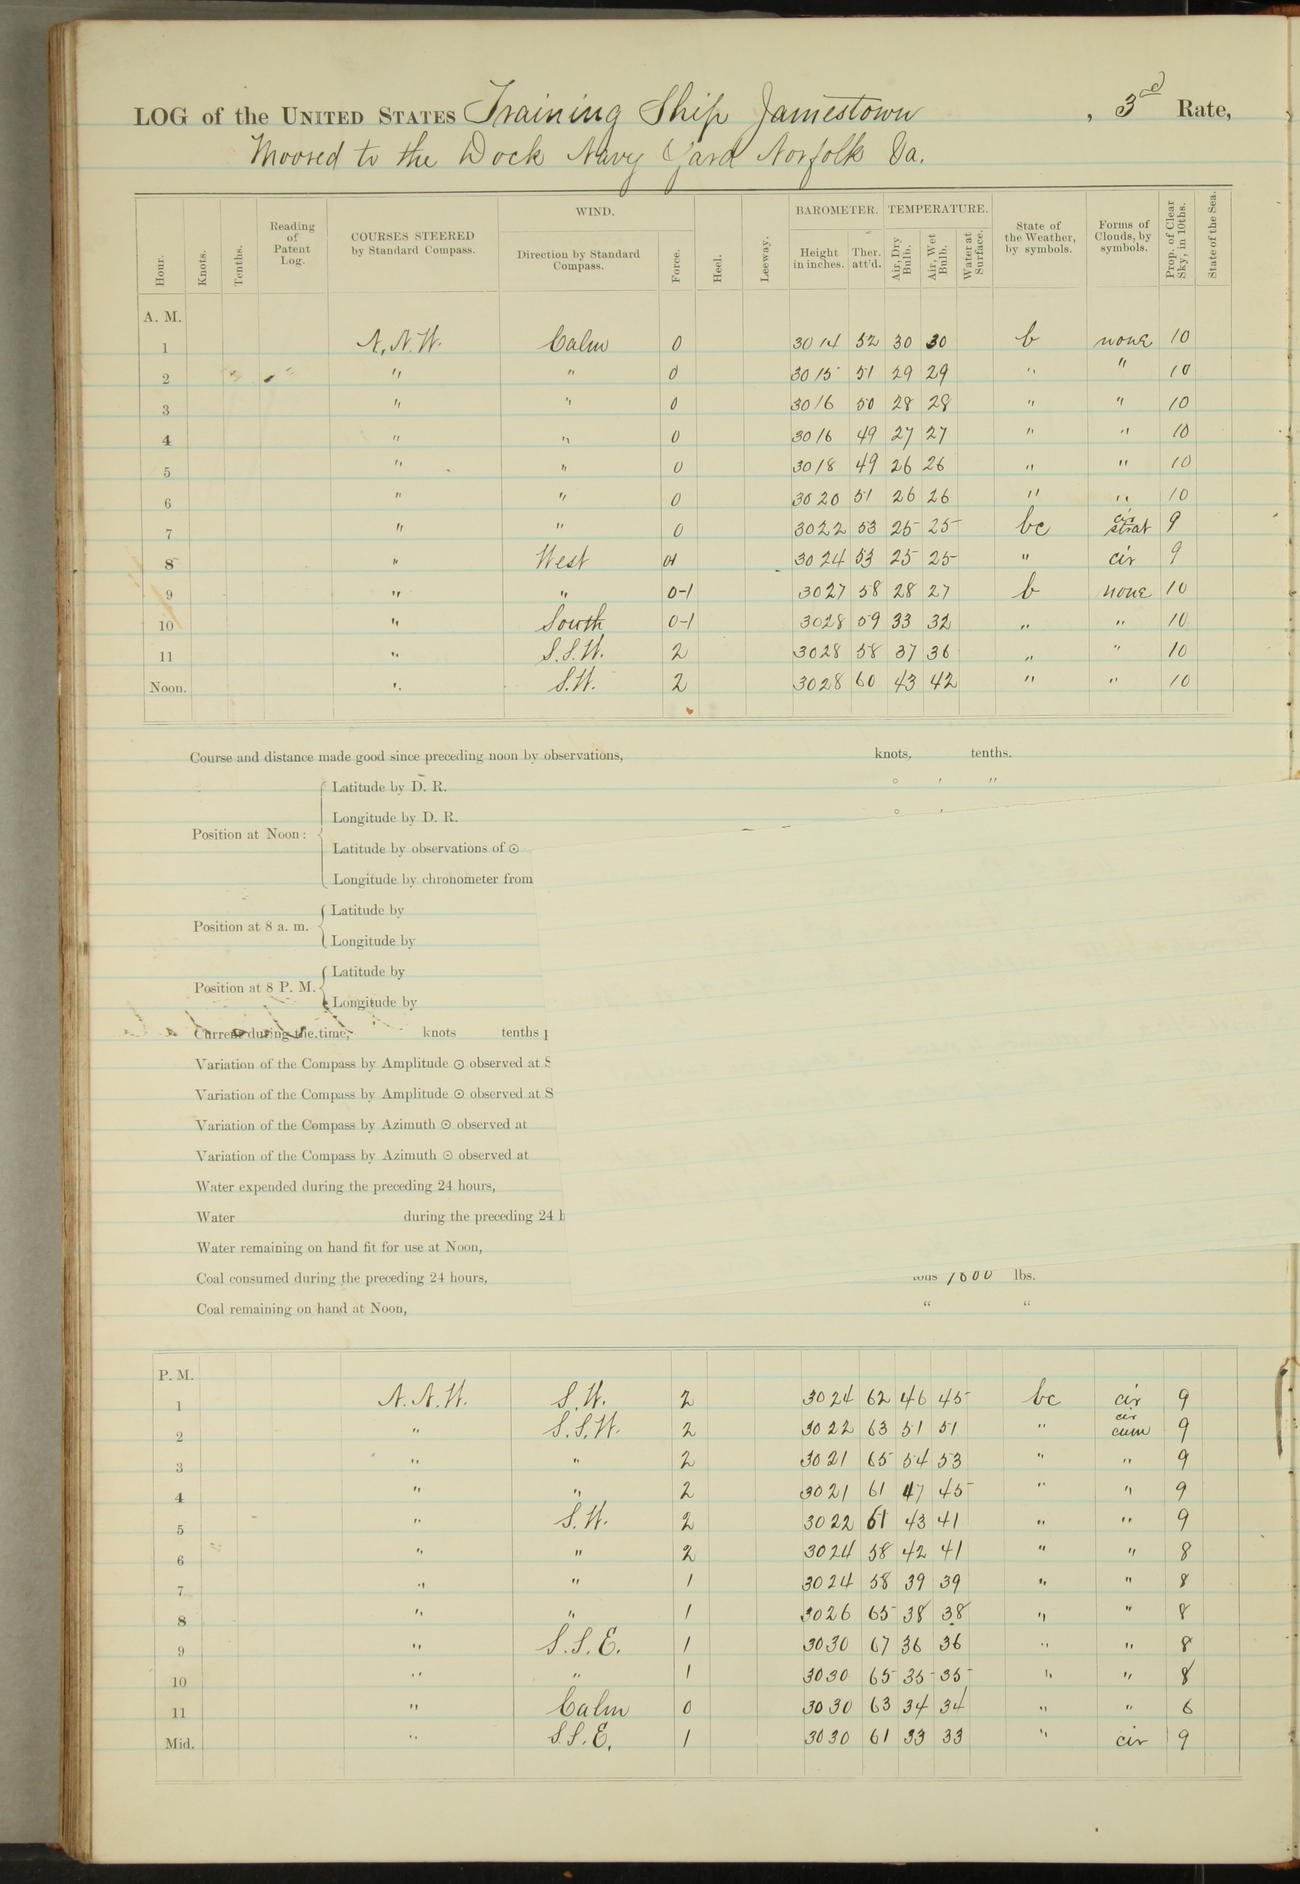 LOG of the UNITED STATES Training Ship Jamestown, 3rd Rate,
Moored to the Dock Navy Yard Norfolk Va.
Hour. Knots. Tenths. Reading of Patent Log. COURSES STEERED by Standard Compass. WIND. Direction by Standard Compass. Force. Heel. Leeway. BAROMETER. Height in inches. Ther. att'd. TEMPERATURE. Air, Dry Bulb. Air, Wet Bulb. Water at Surface. State of the Weather, by symbols. Forms of Clouds, by symbols. Prop. of Clear Sky, in 10ths. State of the Sea.
A. M.
1 N.N.W. Calm 0 30 14 52 30 30 b none 10
2 " " 0 30 15 51 29 29 " " 10
3 " " 0 30 16 50 28 28 " " 10
4 " " 0 30 16 49 27 27 " " 10
5 " " 0 30 18 49 26 26 " " 10
6 " " 0 30 20 51 26 26 " " 10
7 " " 0 30 22 53 25 25 bc cir strat 9
8 " West 01 30 24 53 25 25 " cir 9
9 " " 0-1 30 27 58 28 27 b none 10
10 " South 0-1 30 28 59 33 32 " " 10
11 " S.S.W. 2 30 28 58 37 36 " " 10
Noon. " S.W. 2 30 28 60 43 42 " " 10
Course and distance made good since preceding noon by observations, knots, tenths.
Position at Noon:
Latitude by D. R. ° ' "
Longitude by D. R. ° '
Latitude by observations of ⊙
Longitude by chronometer from
Position at 8 a. m.
Latitude by
Longitude by
Position at 8 P. M.
Latitude by
Longitude by
Current during the time, knots tenths
Variation of the Compass by Amplitude ⊙ observed at S
Variation of the Compass by Amplitude ⊙ observed at S
Variation of the Compass by Azimuth ⊙ observed at
Variation of the Compass by Azimuth ⊙ observed at
Water expended during the preceding 24 hours,
Water during the preceding 24 h
Water remaining on hand fit for use at Noon,
Coal consumed during the preceding 24 hours, tons 1000 lbs.
Coal remaining on hand at Noon, " "
P. M.
1 N.N.W. S.W. 2 30 24 62 46 45 bc cir 9
2 " S.S.W. 2 30 22 63 51 51 " cir cum 9
3 " " 2 30 21 65 54 53 " " 9
4 " " 2 30 21 61 47 45 " " 9
5 " S.W. 2 30 22 61 43 41 " " 9
6 " " 2 30 24 58 42 41 " " 8
7 " " 1 30 24 58 39 39 " " 8
8 " " 1 30 26 65 38 38 " " 8
9 " S.S.E. 1 30 30 67 36 36 " " 8
10 " " 1 30 30 65 35 35 " " 8
11 " Calm 0 30 30 63 34 34 " " 6
Mid. " S.S.E. 1 30 30 61 33 33 " cir 9